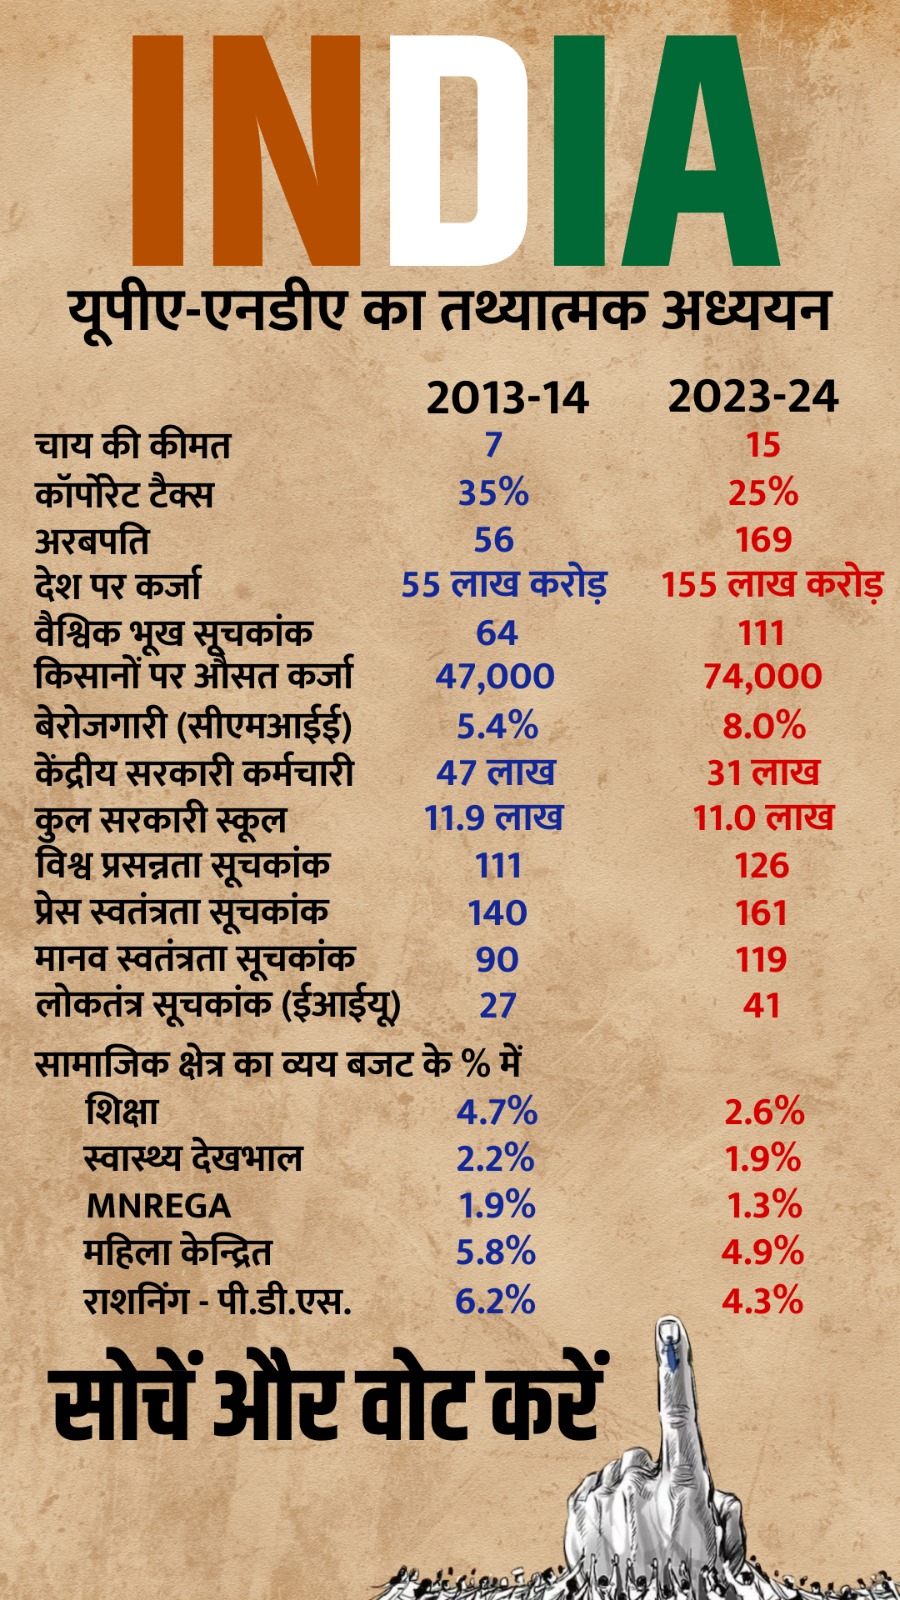 INDIA
यूपीए-एनडीए का तथ्यात्मक अध्ययन
2013-14 2023-24
चाय की कीमत 7 15
कॉर्पोरेट टैक्स 35% 25%
अरबपति 56 169
देश पर कर्जा 55 लाख करोड़ 155 लाख करोड़
वैश्विक भूख सूचकांक 64 111
किसानों पर औसत कर्जा 47,000 74,000
बेरोजगारी (सीएमआईई) 5.4% 8.0%
केंद्रीय सरकारी कर्मचारी 47 लाख 31 लाख
कुल सरकारी स्कूल 11.9 लाख 11.0 लाख
विश्व प्रसन्नता सूचकांक 111 126
प्रेस स्वतंत्रता सूचकांक 140 161
मानव स्वतंत्रता सूचकांक 90 119
लोकतंत्र सूचकांक (ईआईयू) 27 41
सामाजिक क्षेत्र का व्यय बजट के % में
शिक्षा 4.7% 2.6%
स्वास्थ्य देखभाल 2.2% 1.9%
MNREGA 1.9% 1.3%
महिला केन्द्रित 5.8% 4.9%
राशनिंग - पी.डी.एस. 6.2% 4.3%
सोचें और वोट करें